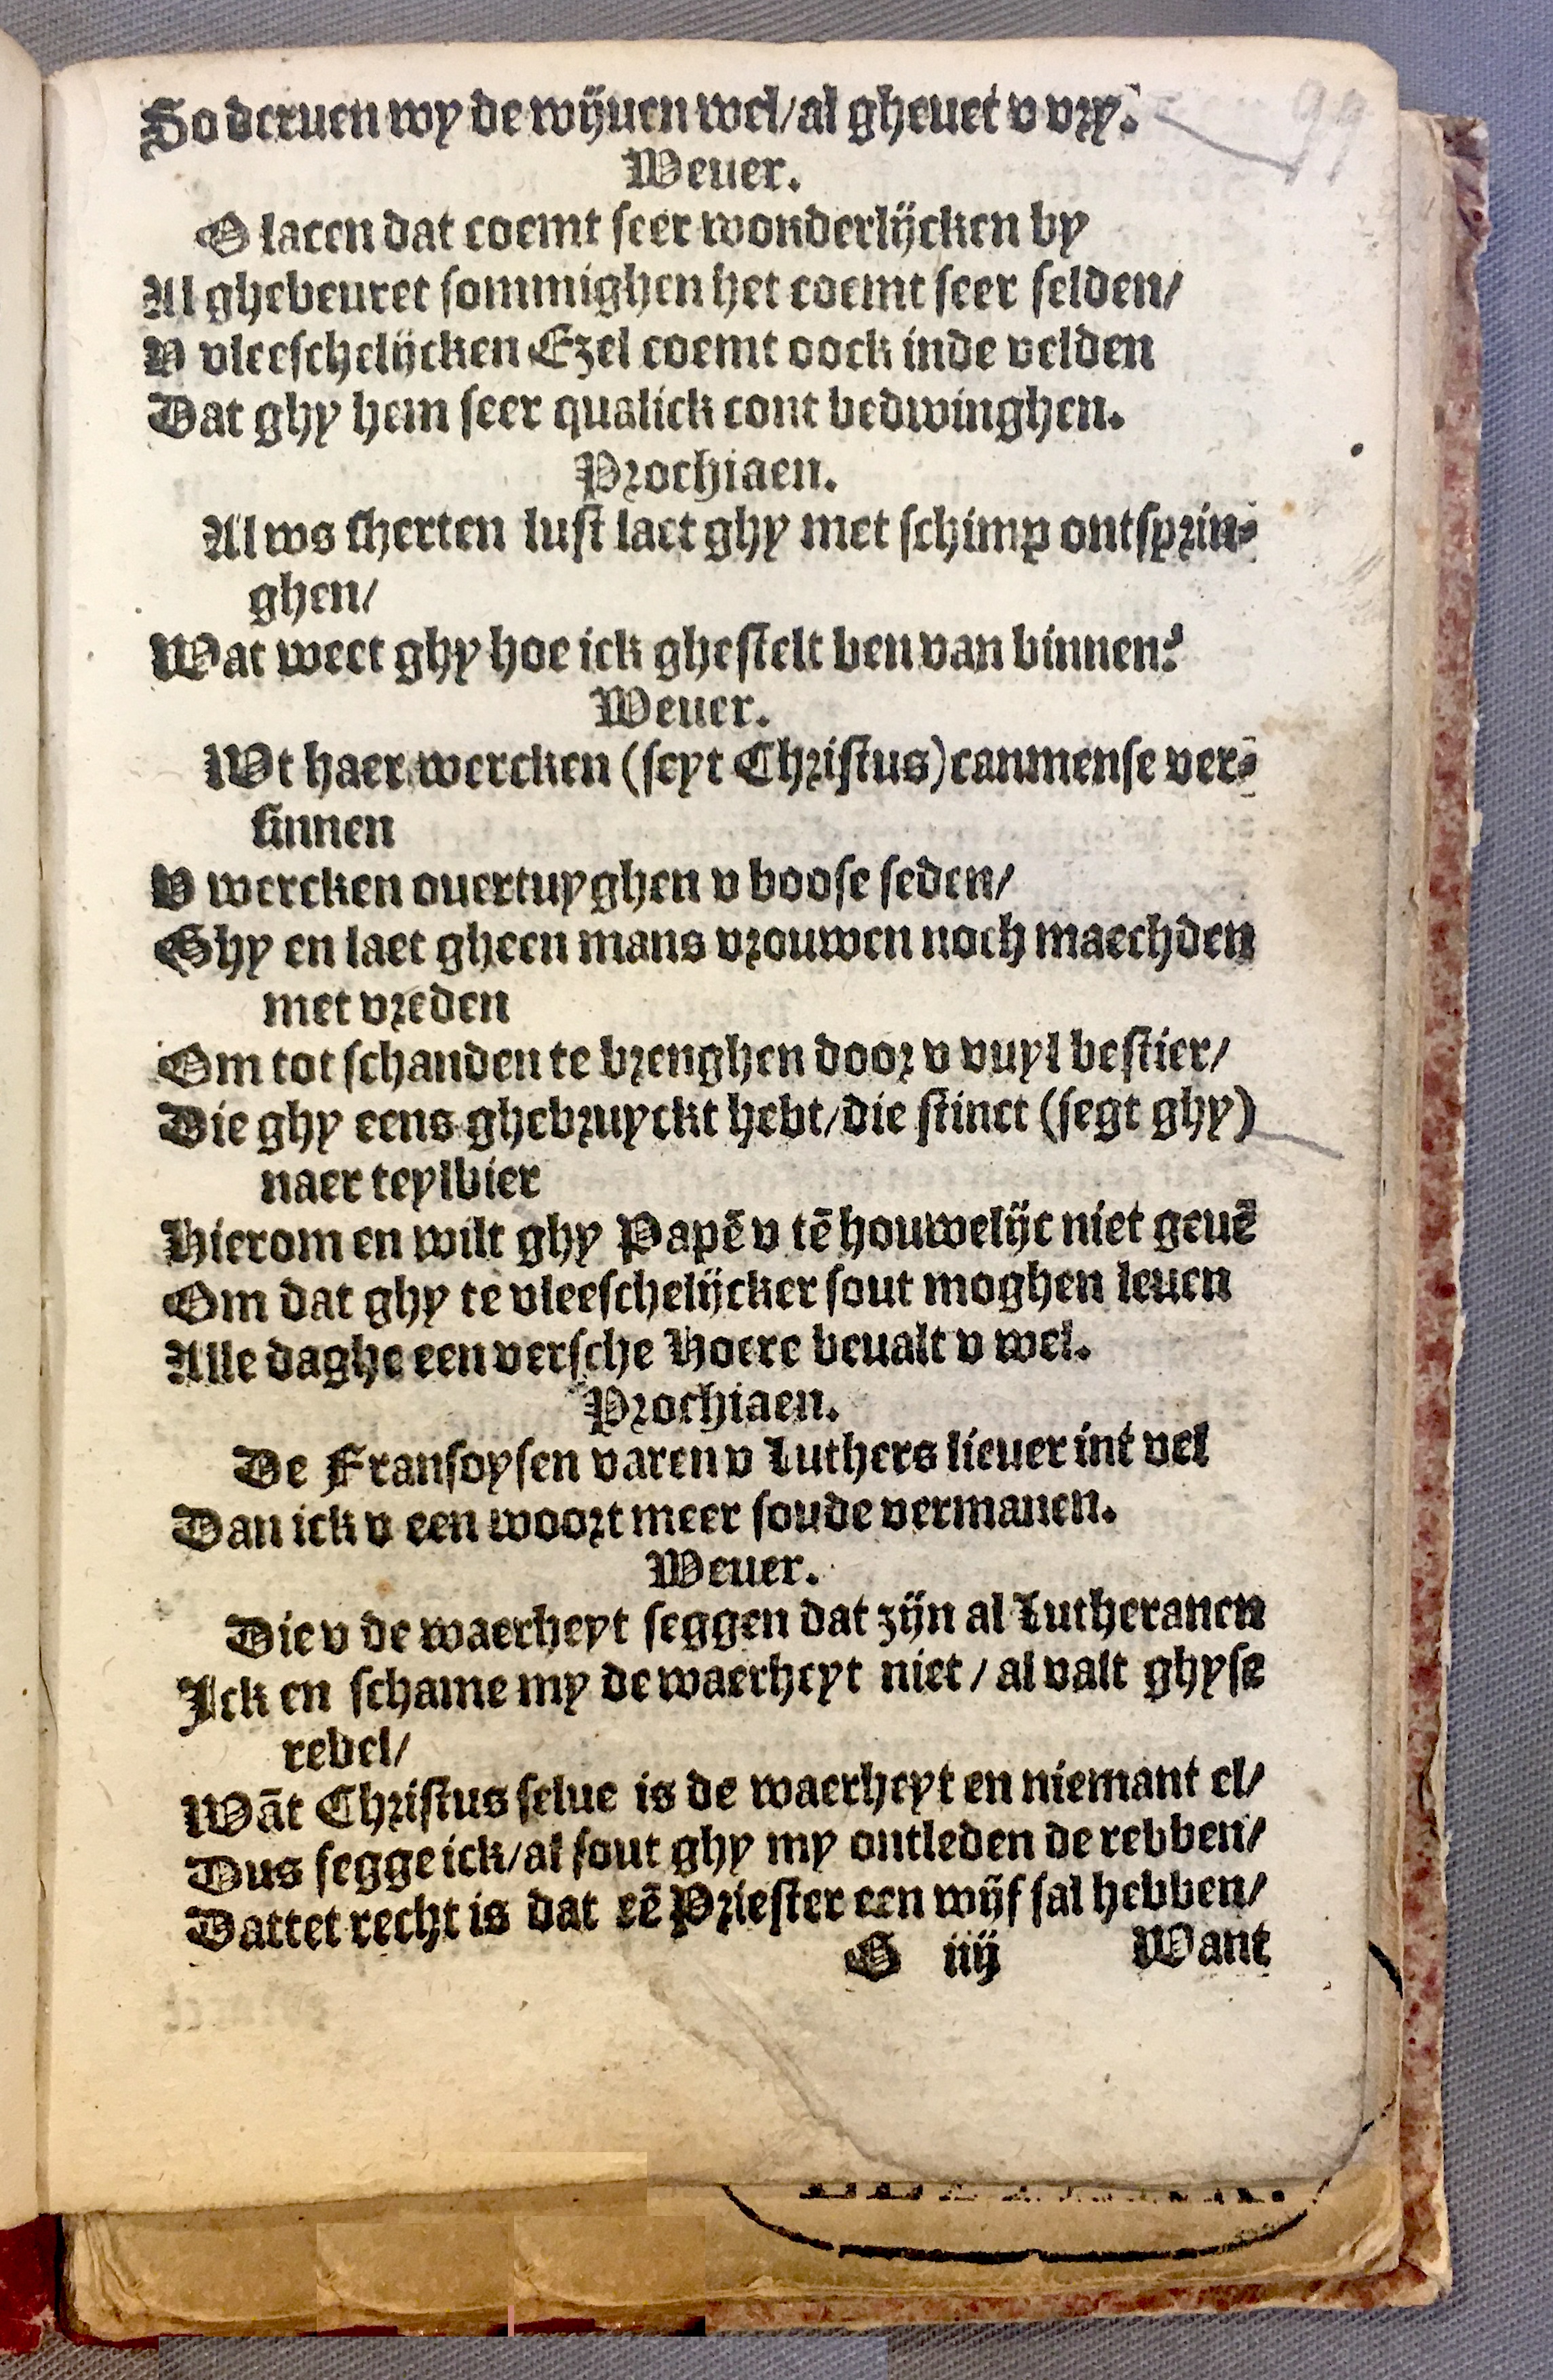 So deruen wy de wijuen wel/al gheuet v vry.
Weuer.
O lacen dat coemt seer wonderlijcken by
Al ghebeuret sommighen het coemt seer selden/
V vleeschelijcken Ezel coemt oock inde velden
Dat ghy hem seer qualick cont bedwinghen.
Prochiaen.
Al ws therten lust laet ghy met schimp ontsprin-
ghen/
Wat weet ghy hoe ick ghestelt ben van binnen?
Weuer.
Wt haer wercken (seyt Christus) canmense ver-
sinnen
V wercken ouertuyghen v boose seden/
Ghy en laet gheen mans vrouwen noch maechden
met vreden
Om tot schanden te brenghen door v vuyl bestier/
Die ghy eens ghebruyckt hebt/die stinct (segt ghy)
naer teylbier
Hierom en wilt ghy Papē v tē houwelijc niet geuē
Om dat ghy te vleeschelijcker sout moghen leuen
Alle daghe een versche Hoere beualt v wel.
Prochiaen.
De Fransoysen varen v Luthers lieuer int vel
Dan ick v een woort meer soude vermanen.
Weuer.
Die v de waerheyt seggen dat zijn al Lutheranen
Ick en schame my de waerheyt niet / al valt ghyse
rebel/
Wāt Christus selue is de waerheyt en niemant el/
Dus segge ick/al sout ghy my ontleden de rebben/
Dattet recht is dat eē Priester een wijf sal hebben/
G iiij Want